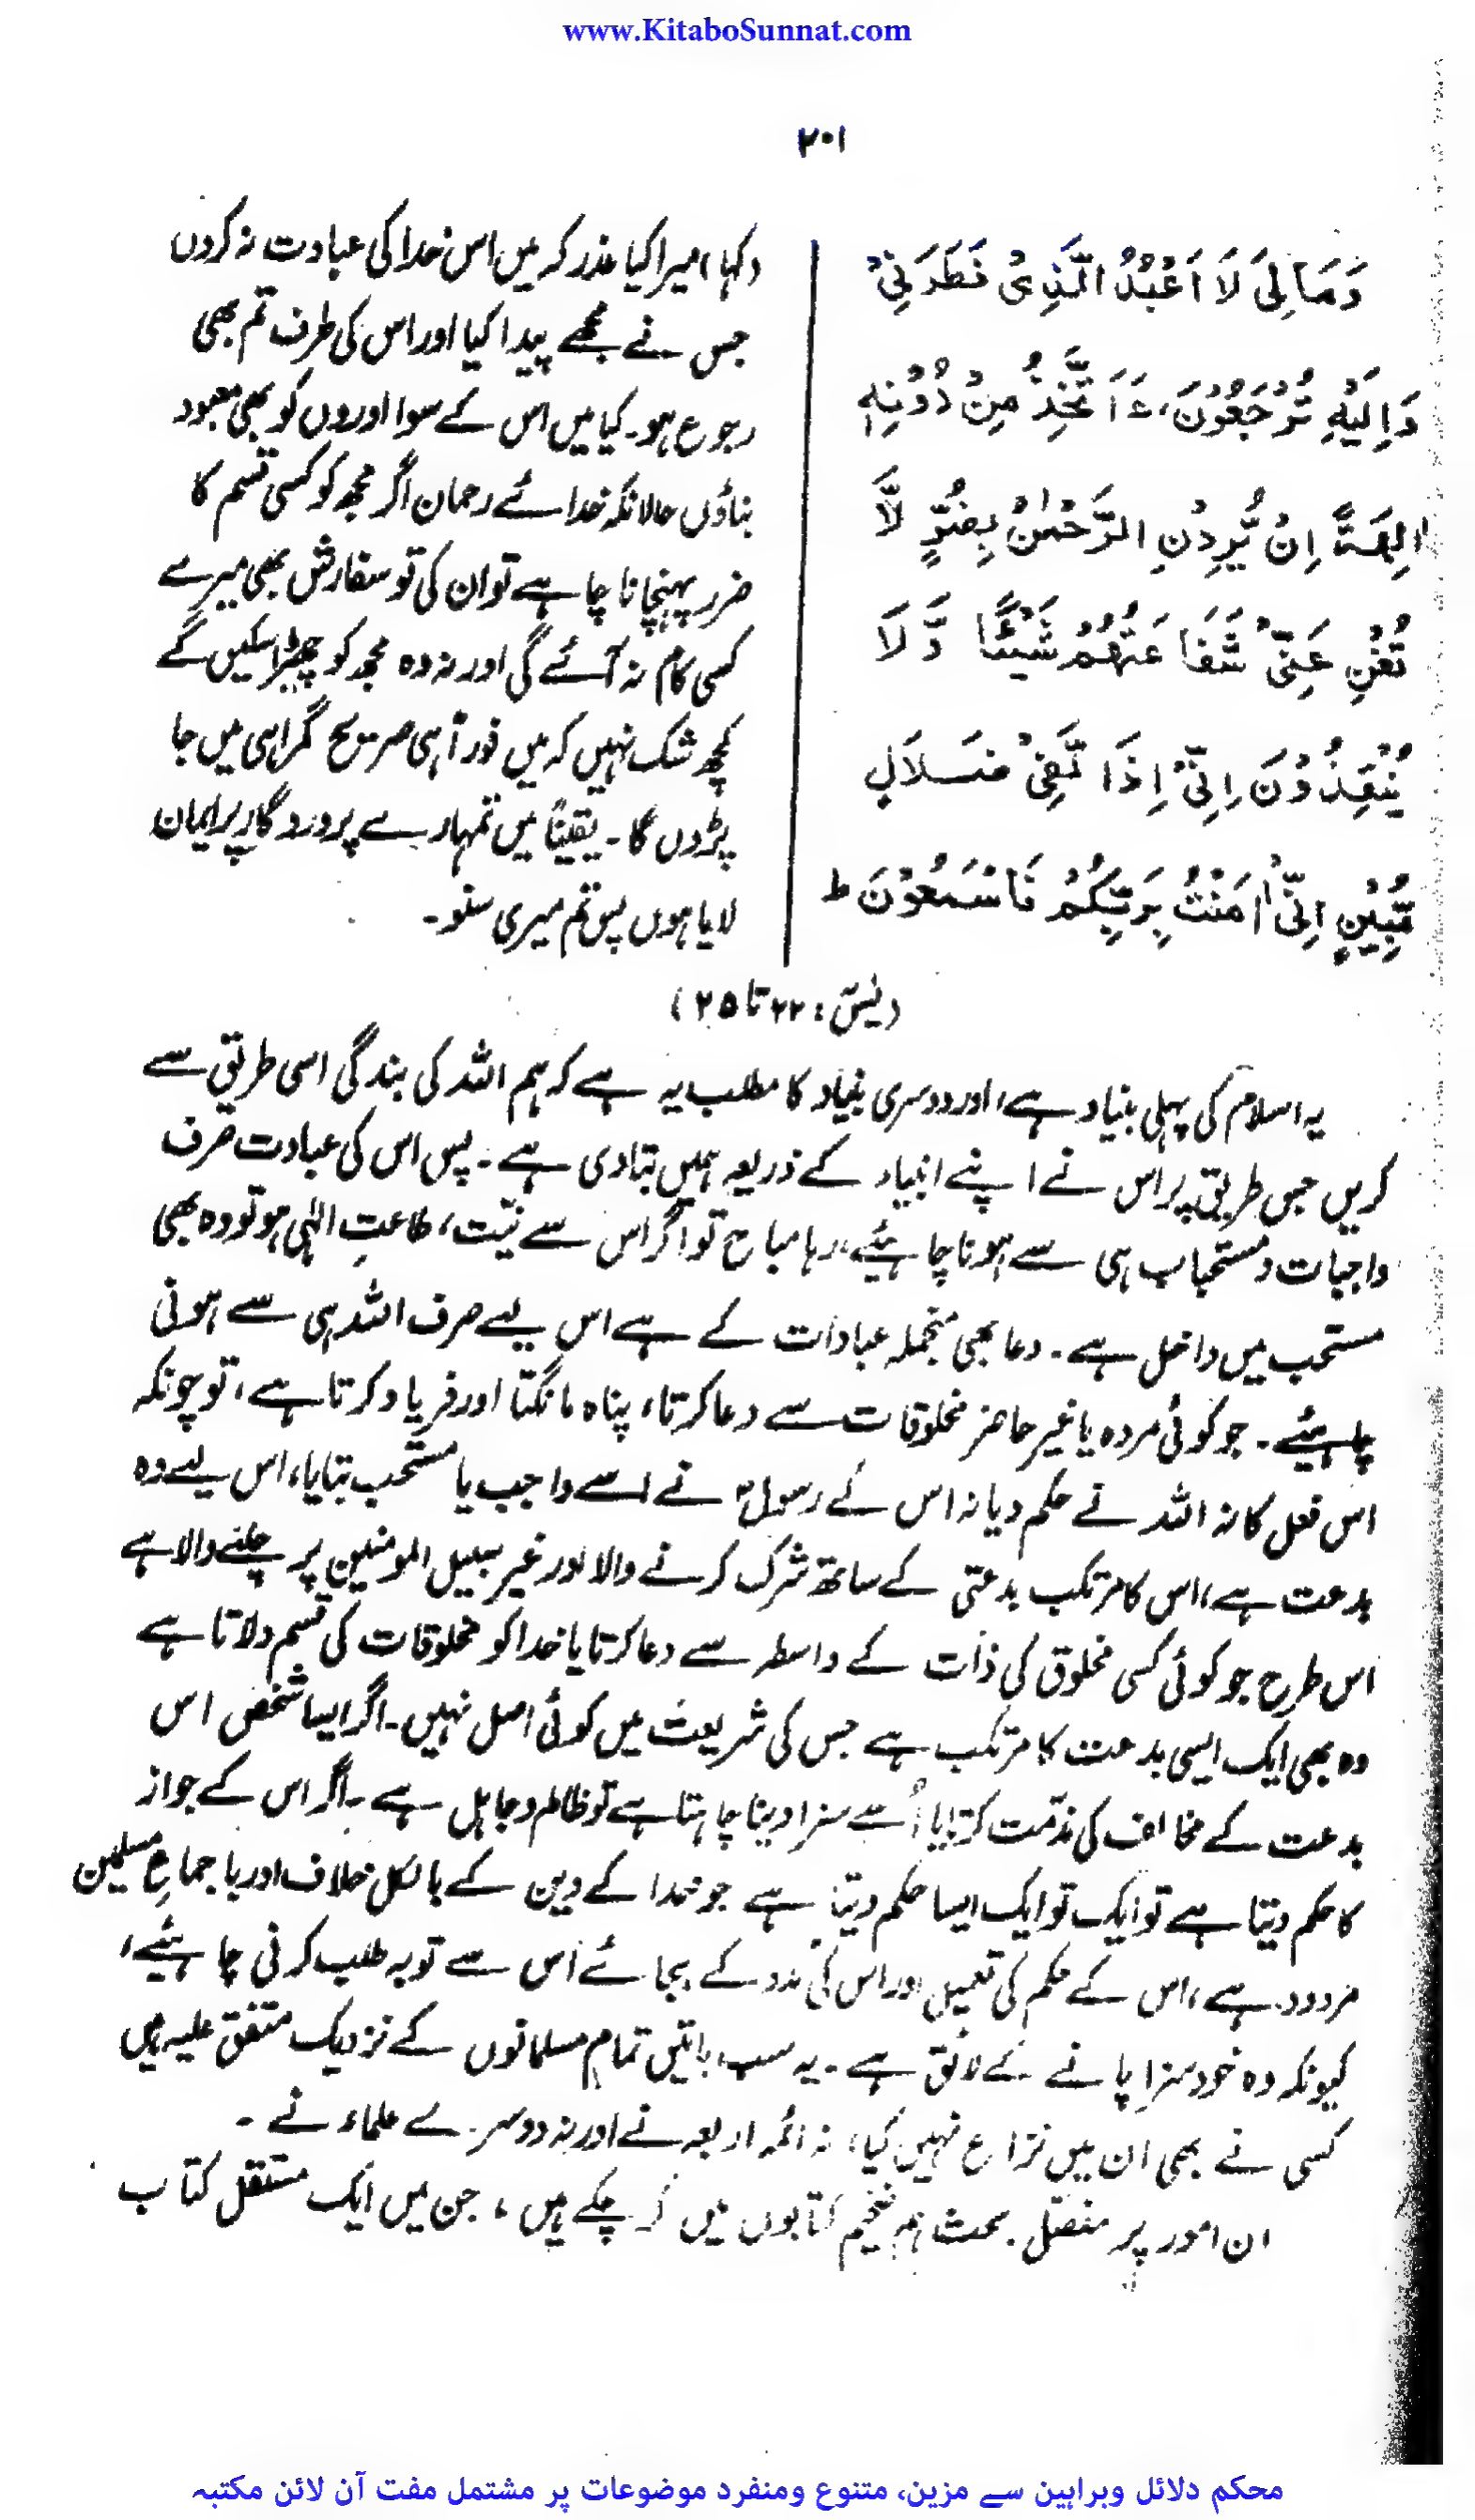 www.KitaboSunnat.com
۲۰۱
وَمَا لِیَ لَا اَعْبُدُ الَّذِیْ فَطَرَنِیْ
وَاِلَیْهِ تُرْجَعُوْنَ، ءَاَتَّخِذُ مِنْ دُوْنِهٖ
اٰلِهَةً اِنْ یُّرِدْنِ الرَّحْمٰنُ بِضُرٍّ لَّا
تُغْنِ عَنِّیْ شَفَاعَتُهُمْ شَیْئًا وَّلَا
یُنْقِذُوْنَ، اِنِّیْ اِذًا لَّفِیْ ضَلَالٍ
مُّبِیْنٍ اِنِّیْ اٰمَنْتُ بِرَبِّكُمْ فَاسْمَعُوْنَ ط
(کہا) میرا کیا عذر کہ میں اس خدا کی عبادت نہ کروں
جس نے مجھے پیدا کیا اور اس کی طرف تم بھی
رجوع ہو۔ کیا میں اس کے سوا اوروں کو بھی معبود
بناؤں حالانکہ خدائے رحمان اگر مجھ کو کسی قسم کا
ضرر پہنچانا چاہے تو ان کی تو سفارش بھی میرے
کسی کام نہ آئے گی اور نہ وہ مجھ کو چھڑا سکیں گے
کچھ شک نہیں کہ میں فوراً ہی صریح گمراہی میں جا
پڑوں گا۔ یقیناً میں تمہارے پروردگار پر ایمان
لایا ہوں پس تم میری سنو۔
(یٰسٓ: ۲۲ تا ۲۵)
یہ اسلام کی پہلی بنیاد ہے، اور دوسری بنیاد کا مطلب یہ ہے کہ ہم اللہ کی بندگی اسی طریق سے
کریں جس طریق پر اس نے اپنے انبیاء کے ذریعہ ہمیں بتا دی ہے۔ پس اس کی عبادت صرف
واجبات و مستحباب ہی سے ہونا چاہئیے، رہا مباح تو اگر اس سے نیّت، طاعتِ الٰہی ہو تو وہ بھی
مستحب میں داخل ہے۔ دعا بھی منجملہ عبادات کے ہے اس لیے صرف اللہ ہی سے ہونی
چاہئیے۔ جو کوئی مردہ یا غیر حاضر مخلوقات سے دعا کرتا، پناہ مانگتا اور فریاد کرتا ہے، تو چونکہ
اس فعل کا نہ اللہ نے حکم دیا نہ اس کے رسولؐ نے اسے واجب یا مستحب بتایا، اس لیے وہ
بدعت ہے، اس کا مرتکب بدعتی کے ساتھ شرک کرنے والا اور غیر سبیل المومنین پر چلنے والا ہے
اس طرح جو کوئی کسی مخلوق کی ذات کے واسطہ سے دعا کرتا یا خدا کو مخلوقات کی قسم دلاتا ہے
وہ بھی ایک ایسی بدعت کا مرتکب ہے جس کی شریعت میں کوئی اصل نہیں۔ اگر ایسا شخص اس
بدعت کے مخالف کی مذمّت کرتا یا اُسے سزا دینا چاہتا ہے تو ظالم و جاہل ہے۔ اگر اس کے جواز
کا حکم دیتا ہے تو ایک تو ایک ایسا حکم دیتا ہے جو خدا کے دین کے بالکل خلاف اور باجماعِ مسلمین
مردود ہے، اس کے حکم کی تعمیل اور اس کی مدد کے بجائے اُس سے توبہ طلب کرنی چاہئیے،
کیونکہ وہ خود سزا پانے کے لائق ہے۔ یہ سب باتیں تمام مسلمانوں کے نزدیک متفق علیہ ہیں
کسی نے بھی ان میں نزاع نہیں کیا، نہ ائمہ اربعہ نے اور نہ دوسرے علماء نے۔
ان امور پر مفصّل بحث ہم ضخیم کتابوں میں کر چکے ہیں، جن میں ایک مستقل کتاب
محکم دلائل وبراہین سے مزین، متنوع ومنفرد موضوعات پر مشتمل مفت آن لائن مکتبہ